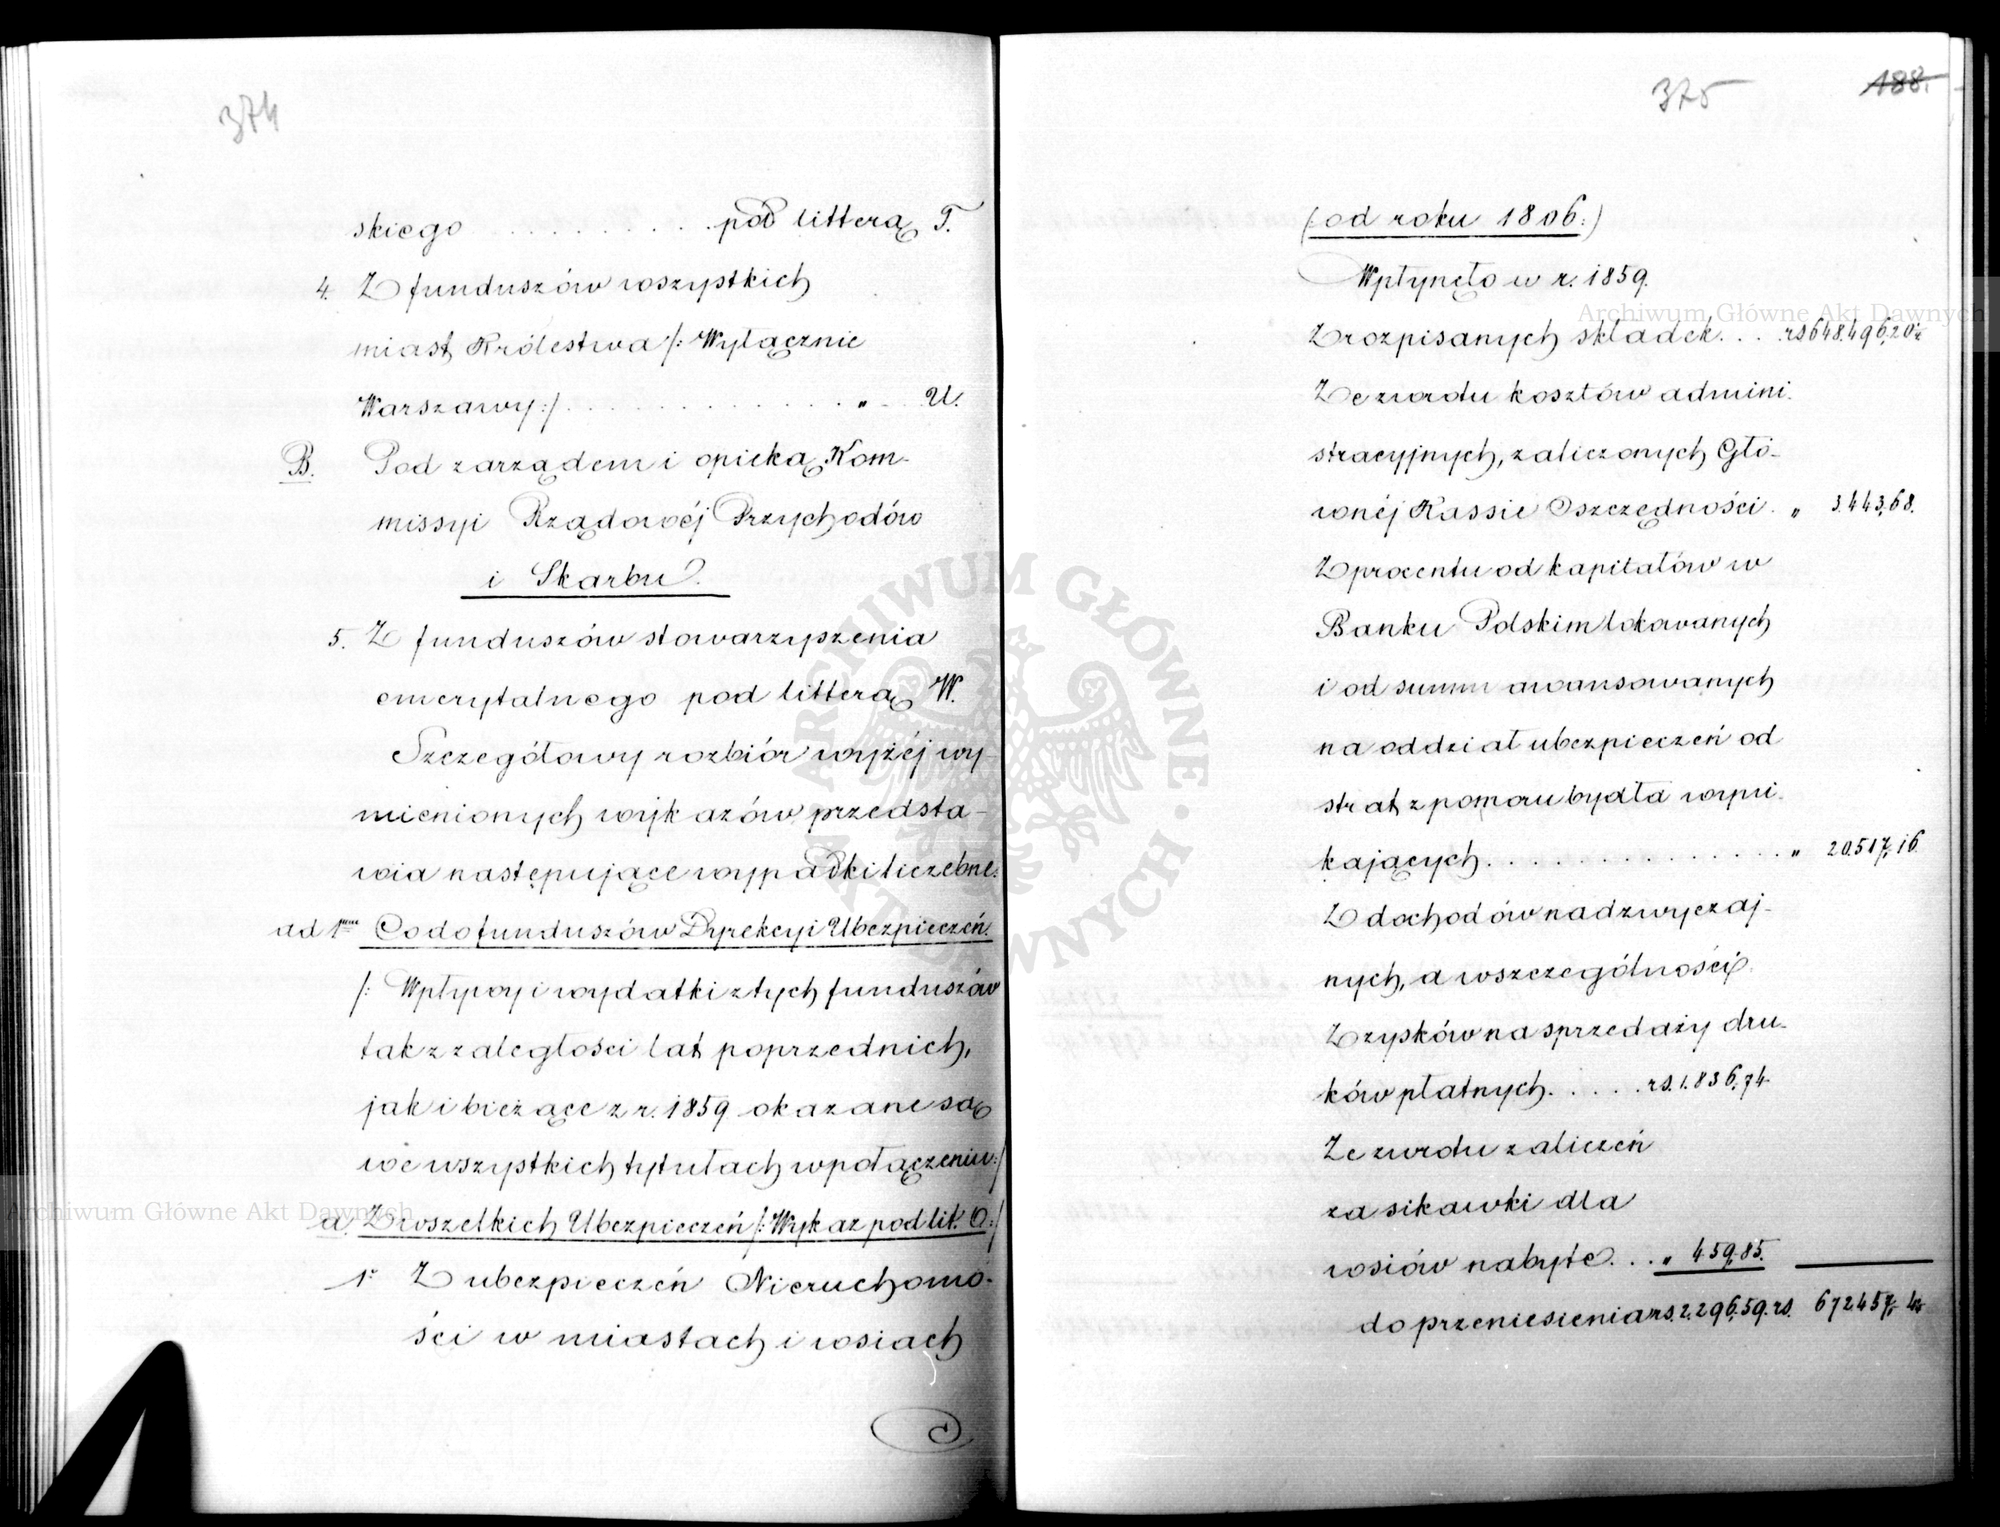 374
skiego . . . . . . . . . . pod litterą T.
4. Z funduszów wszystkich
miast Królestwa /: Wyłącznie
Warszawy :/ . . . . . . . . . . . . . „ . . U.
B. Pod zarządem i opieką Kom-
missyi Rządowéj Przychodów
i Skarbu.
5. Z funduszów stowarzyszenia
emerytalnego pod litterą W.
Szczegółowy rozbiór wyżéj wy-
mienionych wykazów przedsta-
wia następujące wypadki liczebne:
ad 1mm Co do funduszów Dyrekcyi Ubezpieczeń.
/: Wpływy i wydatki z tych funduszów
tak z zaległości lat poprzednich,
jak i bieżące z r. 1859 okazane są
we wszystkich tytułach w połączeniu :/
a. Z wszelkich Ubezpieczeń /: Wykaz pod lit. O :/
1° Z ubezpieczeń Nieruchomo-
ści w miastach i wsiach
375
188.
(: od roku 1806 :)
Wpłynęło w r. 1859.
Z rozpisanych składek . . . . rs 648.496,20½
Ze zwrotu kosztów admini-
stracyjnych, zaliczonych Głó-
wnéj Kassie Oszczędności . „ 3.443,68.
Z procentu od kapitałów w
Banku Polskim lokowanych
i od summ awansowanych
na oddział ubezpieczeń od
strat z pomoru bydła wyni-
kających . . . . . . . . . . . . . . „ 20.517,16
Z dochodów nadzwyczaj-
nych, a w szczególności
Z zysków na sprzedaży dru-
ków płatnych . . . . . rs. 1.836,74
Ze zwrotu zaliczeń
za sikawki dla
wsiów nabyte . . . „ 459,85.
do przeniesienia rs. 2.296,59. rs. 672.457,
ARCHIWUM GŁÓWNE AKT DAWNYCH
Archiwum Główne Akt Dawnych
Archiwum Główne Akt Dawnych